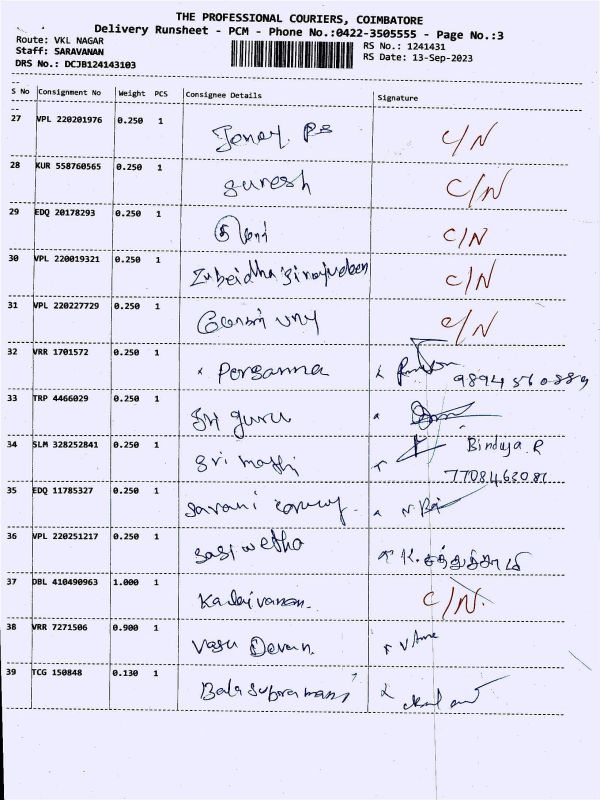 THE PROFESSIONAL COURIERS, COIMBATORE
Delivery Runsheet - PCM - Phone No.:0422-3505555 - Page No.:3
Route: VKL NAGAR RS No.: 1241431
Staff: SARAVANAN RS Date: 13-Sep-2023
DRS No.: DCJB124143103
S No Consignment No Weight PCS Consignee Details Signature
27 VPL 220201976 0.250 1 C/N
28 KUR 558760565 0.250 1 Suresh C/N
29 EDQ 20178293 0.250 1 C/N
30 VPL 220019321 0.250 1 Zubeidha Sirajudeen C/N
31 VPL 220227729 0.250 1 C/N
32 VRR 1701572 0.250 1 Persanna
33 TRP 4466029 0.250 1 Sri guru
34 SLM 328252841 0.250 1 Binduja R
7708463081
35 EDQ 11785327 0.250 1
36 VPL 220251217 0.250 1
37 DBL 410490963 1.000 1 Kalaivanan. C/N.
38 VRR 7271506 0.900 1 Vasu Devan.
39 TCG 150848 0.130 1